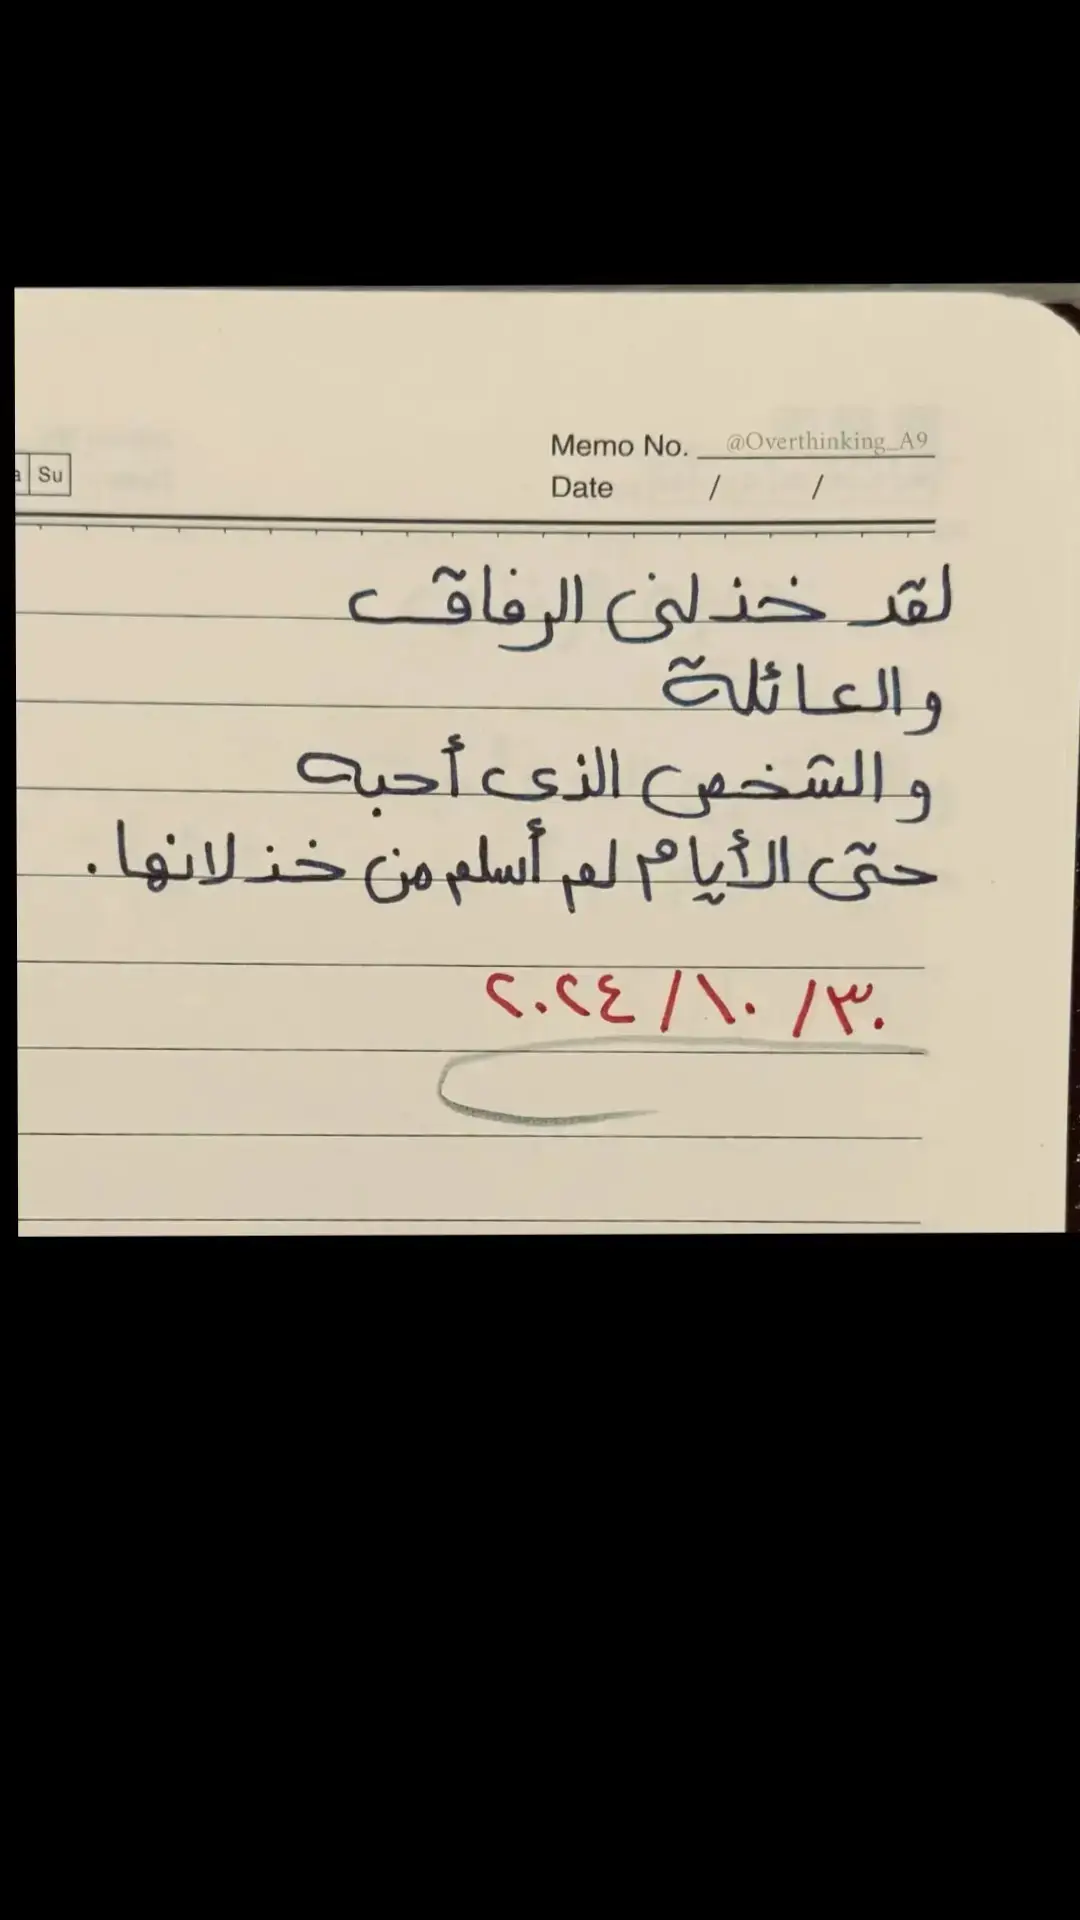 Memo No. @Overthinking_A9
Su
Date / /
لقد خذلنى الرفاق
والعائلة
والشخص الذى أحبه
حتى الأيام لم أسلم من خذلانها.
٣٠/ ١٠/ ٢٠٢٤